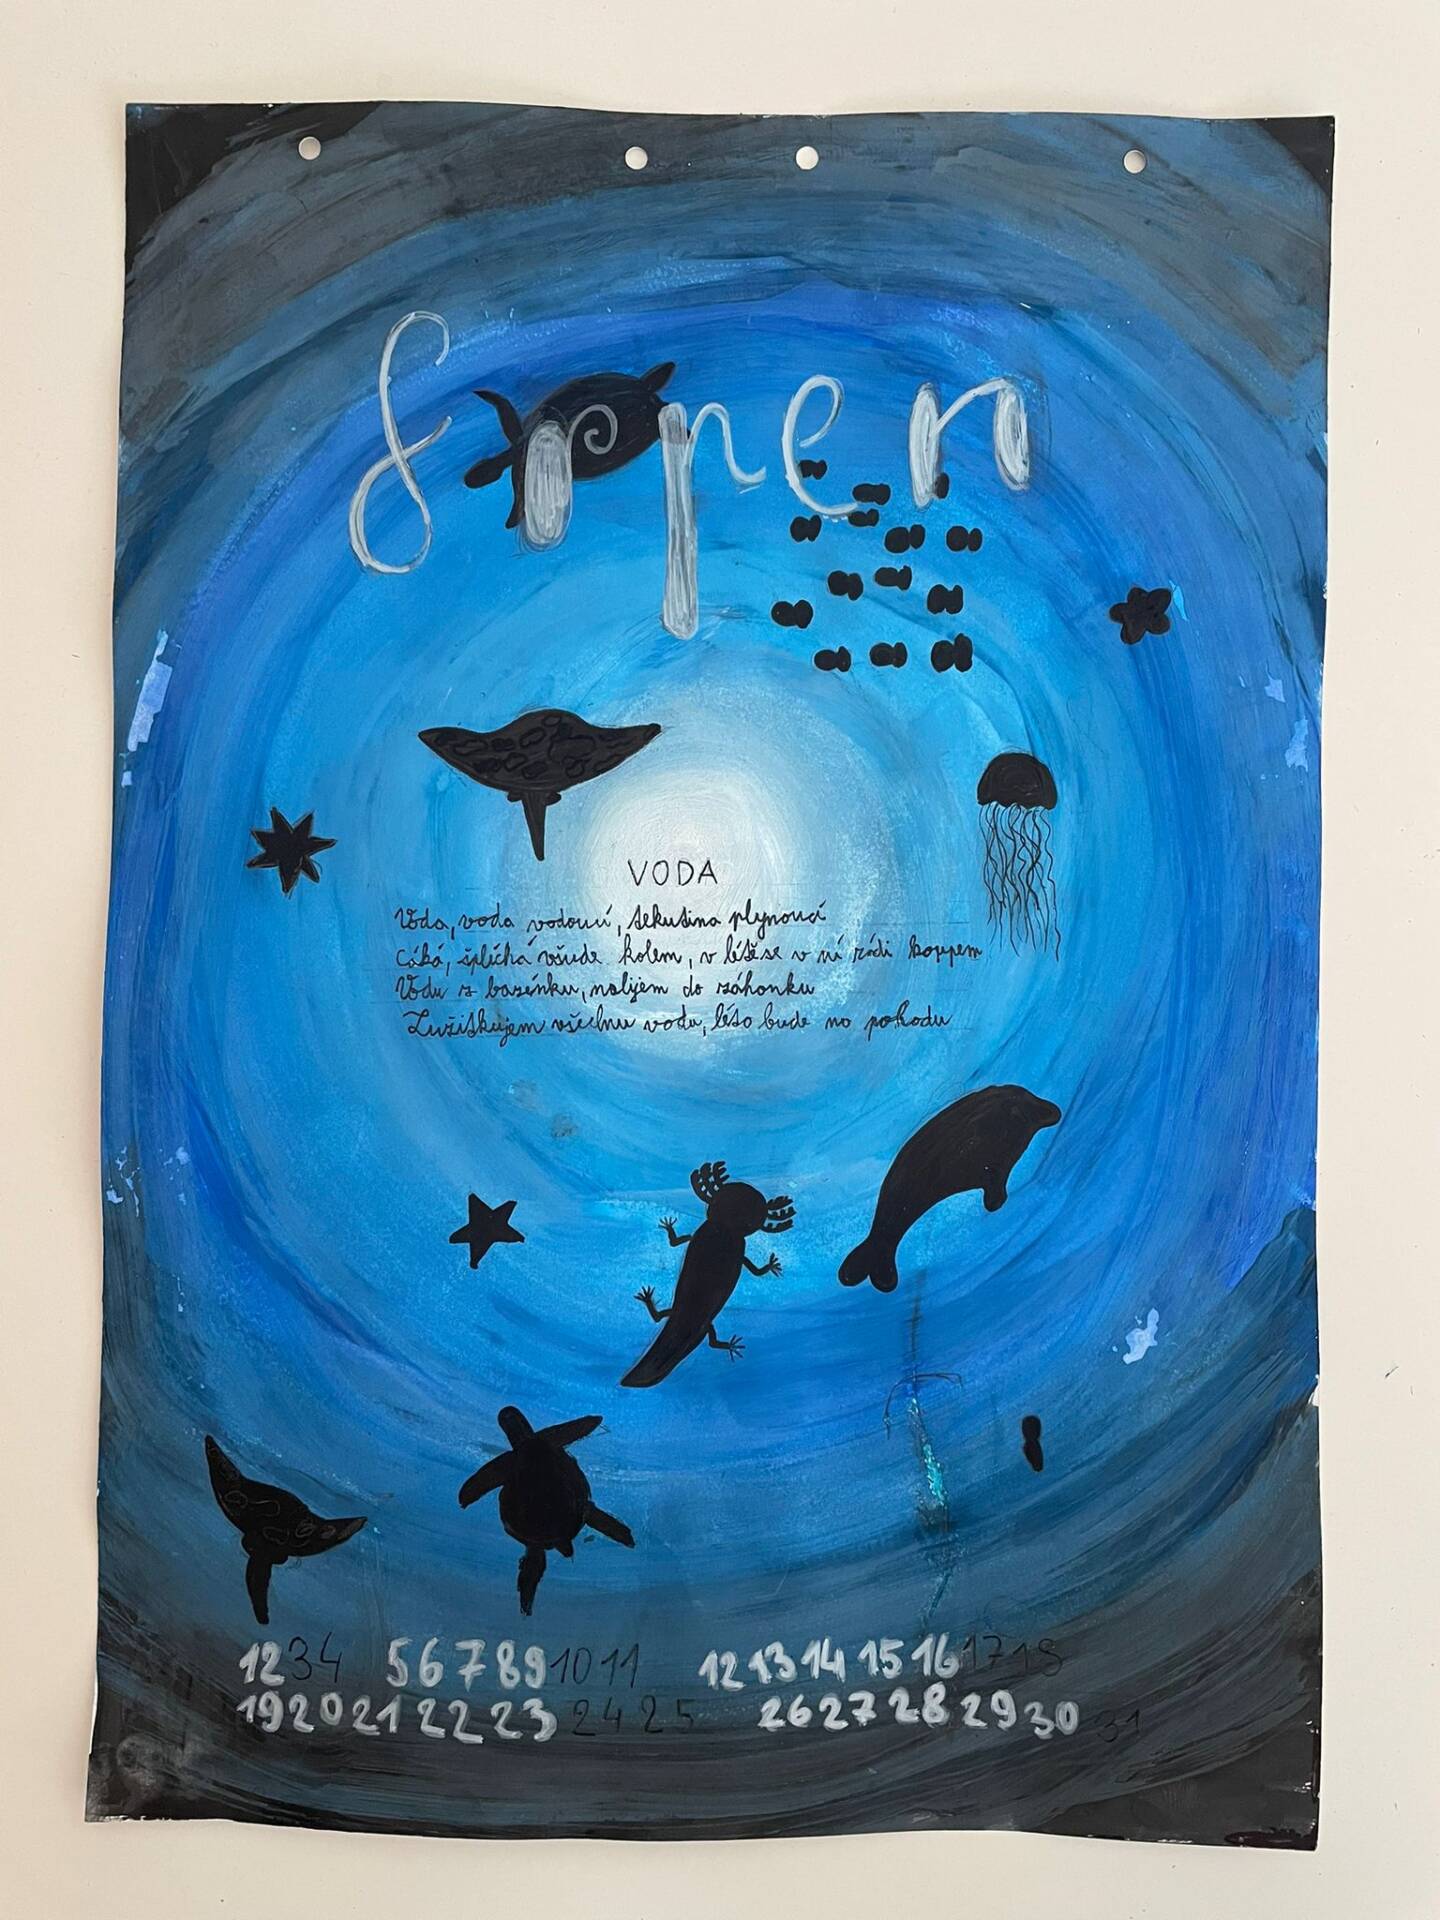 Srpen
VODA
Voda, voda vodoucí, tekutina plynoucí
cáká, šplíchá všude kolem, v létě se v ní rádi koupem
Vodu z bazénku, nalijem do záhonku
Zužitkujem všechnu vodu, léto bude na pohodu
1 2 3 4 5 6 7 8 9 10 11 12 13 14 15 16 17 18
19 20 21 22 23 24 25 26 27 28 29 30 31